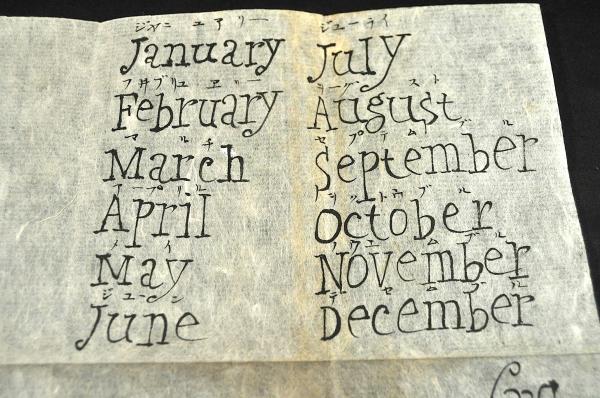 ジャニ ユアリー
January
フヰブリュ エリー
February
マ チ
March
アープリル
April
メイ
May
ジューン
June
ジューライ
July
スト
August
セプテムブル
September
ブル
October
ノウエムブル
November
デセムブル
December